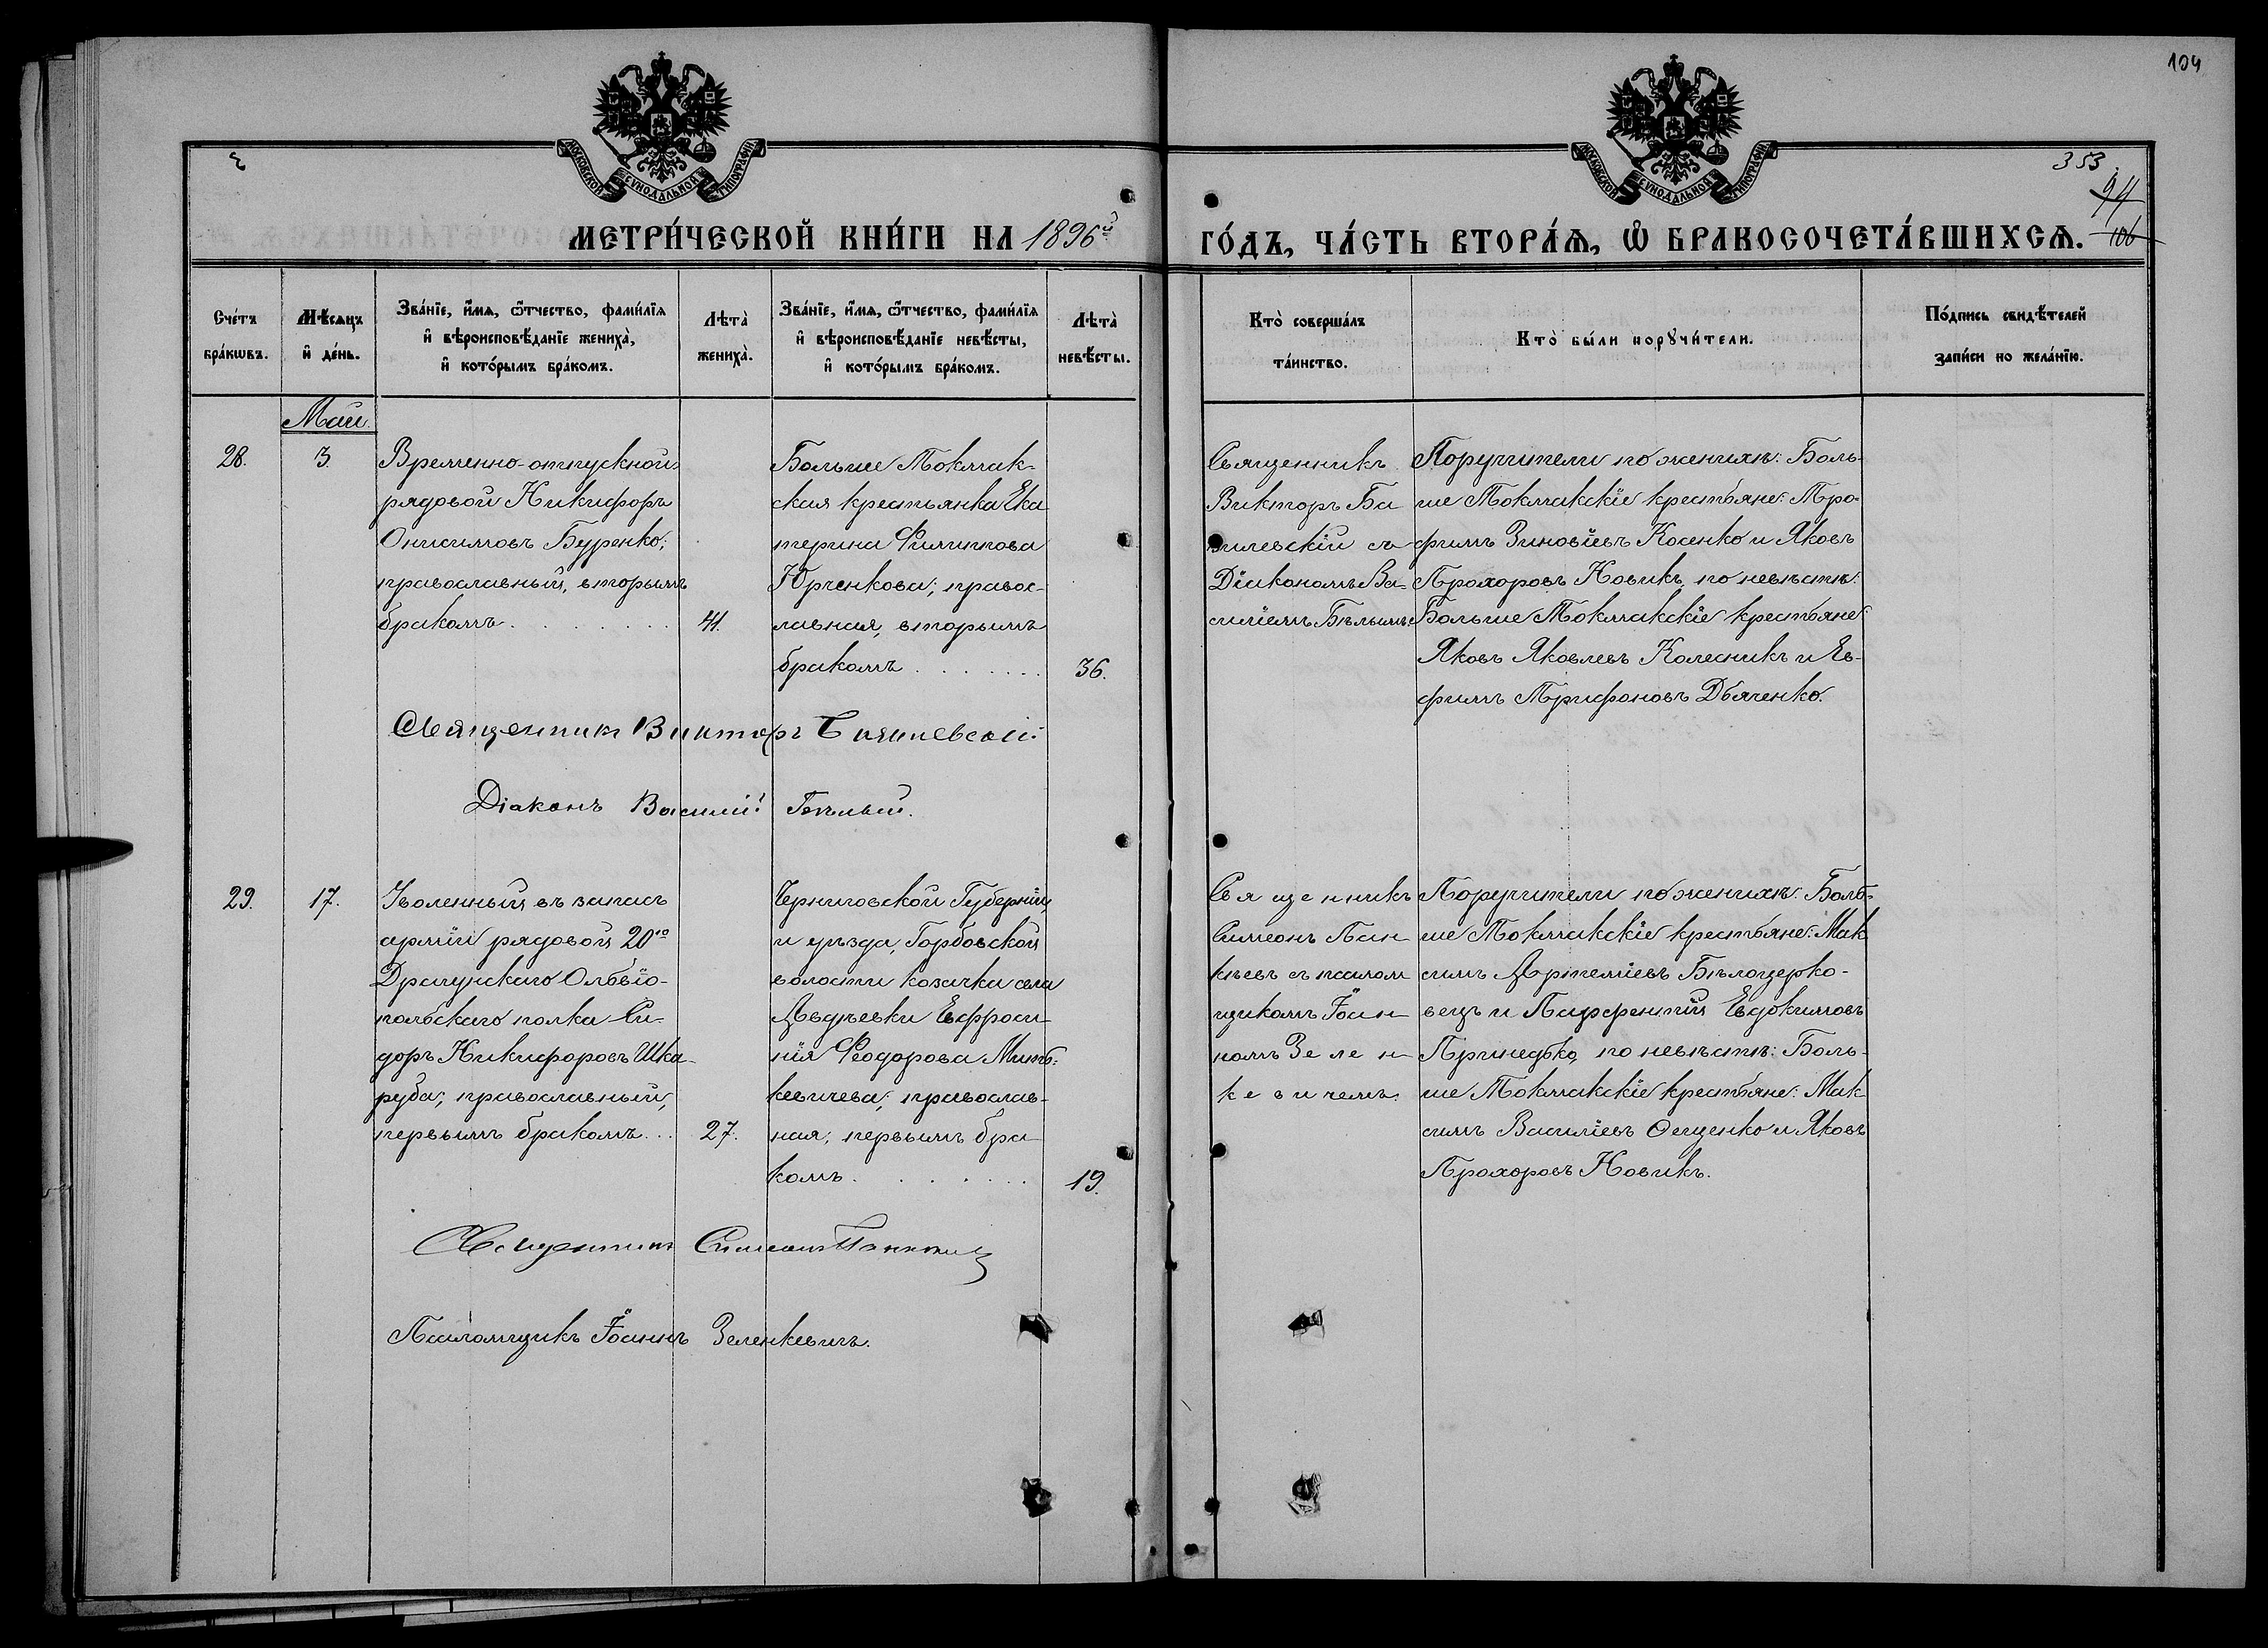 104
МОСКОВСКОЙ СѴНОДАЛЬНОЙ ТИПОГРАФІИ
МОСКОВСКОЙ СѴНОДАЛЬНОЙ ТИПОГРАФІИ
353.
94
106
МЕТРИ́ЧЕСКОЙ КНИ́ГИ НА 1896й
ГО́ДЪ, ЧА́СТЬ ВТОРА́Ѧ, Ѡ҆ БРАКОСОЧЕТА́ВШИХСѦ.
Сче́тъ
бра́кѡвъ.
Мѣ́сѧцъ
и҆ де́нь.
Зва́нїе, и҆́мѧ, ѻ҆́тчество, фами́лїѧ
и҆ вѣроисповѣ́данїе жениха̀,
и҆ кото́рымъ бра́комъ.
Лѣта̀
жениха̀.
Зва́нїе, и҆́мѧ, ѻ҆́тчество, фами́лїѧ
и҆ вѣроисповѣ́данїе невѣ́сты,
и҆ кото́рымъ бра́комъ.
Лѣта̀
невѣ́сты.
Кто̀ соверша́лъ
та́инство.
Кто̀ бы́ли порꙋчи́тели.
По́дпись свидѣ́телей
запи́си по жела́нїю.
Май.
28.
3.
Временно-отпускной
рядовой Никифоръ
Онисимовъ Буренко;
православный, вторымъ
бракомъ . . . . . . .
41.
Больше Токмак-
ская крестьянка Ека
терина Филиппова
Юрченкова; правос-
лавная, вторымъ
бракомъ . . . . . . .
36.
Священникъ
Викторъ Ба
нилевскій съ
Діакономъ Ва-
силіемъ Бѣлымъ.
Поручители по женихѣ: Боль-
ше Токмакскіе крестьяне: Тро-
фимъ Зиновіевъ Косенко и Яковъ
Прохоровъ Новикъ, по невѣстѣ:
Больше Токмакскіе крестьяне:
Яковъ Яковлевъ Колесникъ и Ев-
фимъ Трифоновъ Дьяченко.
Священникъ Викторъ
Діаконъ Василій Бѣлый.
29.
17.
Уволенный въ запасъ
арміи рядовой 20го
Драгунскаго Ольвіо-
польскаго полка Си-
доръ Никифоровъ Шка-
руба; православный,
первымъ бракомъ...
27.
Черниговской Губерніи,
и уѣзда, Горбовской
волости козачка села
Авдѣевки Евфроси-
нія Феодорова Мить-
кевичева; православ-
ная; первымъ бра-
комъ . . . . . . .
19.
Священникъ
Симеонъ Пан
кѣевъ съ псалом
щикомъ Іоан
номъ Зелен
кевичемъ.
Поручители по женихѣ: Боль-
ше Токмакскіе крестьяне: Мак
симъ Артеміевъ Бѣлоцерко-
вецъ и Парфентій Евдокимовъ
по невѣстѣ: Боль-
ше Токмакскіе крестьяне: Мак
симъ Василіевъ Ощенко и Яковъ
Прохоровъ Новикъ.
Священникъ Симеонъ
Псаломщикъ Іоаннъ Зеленкевичъ.